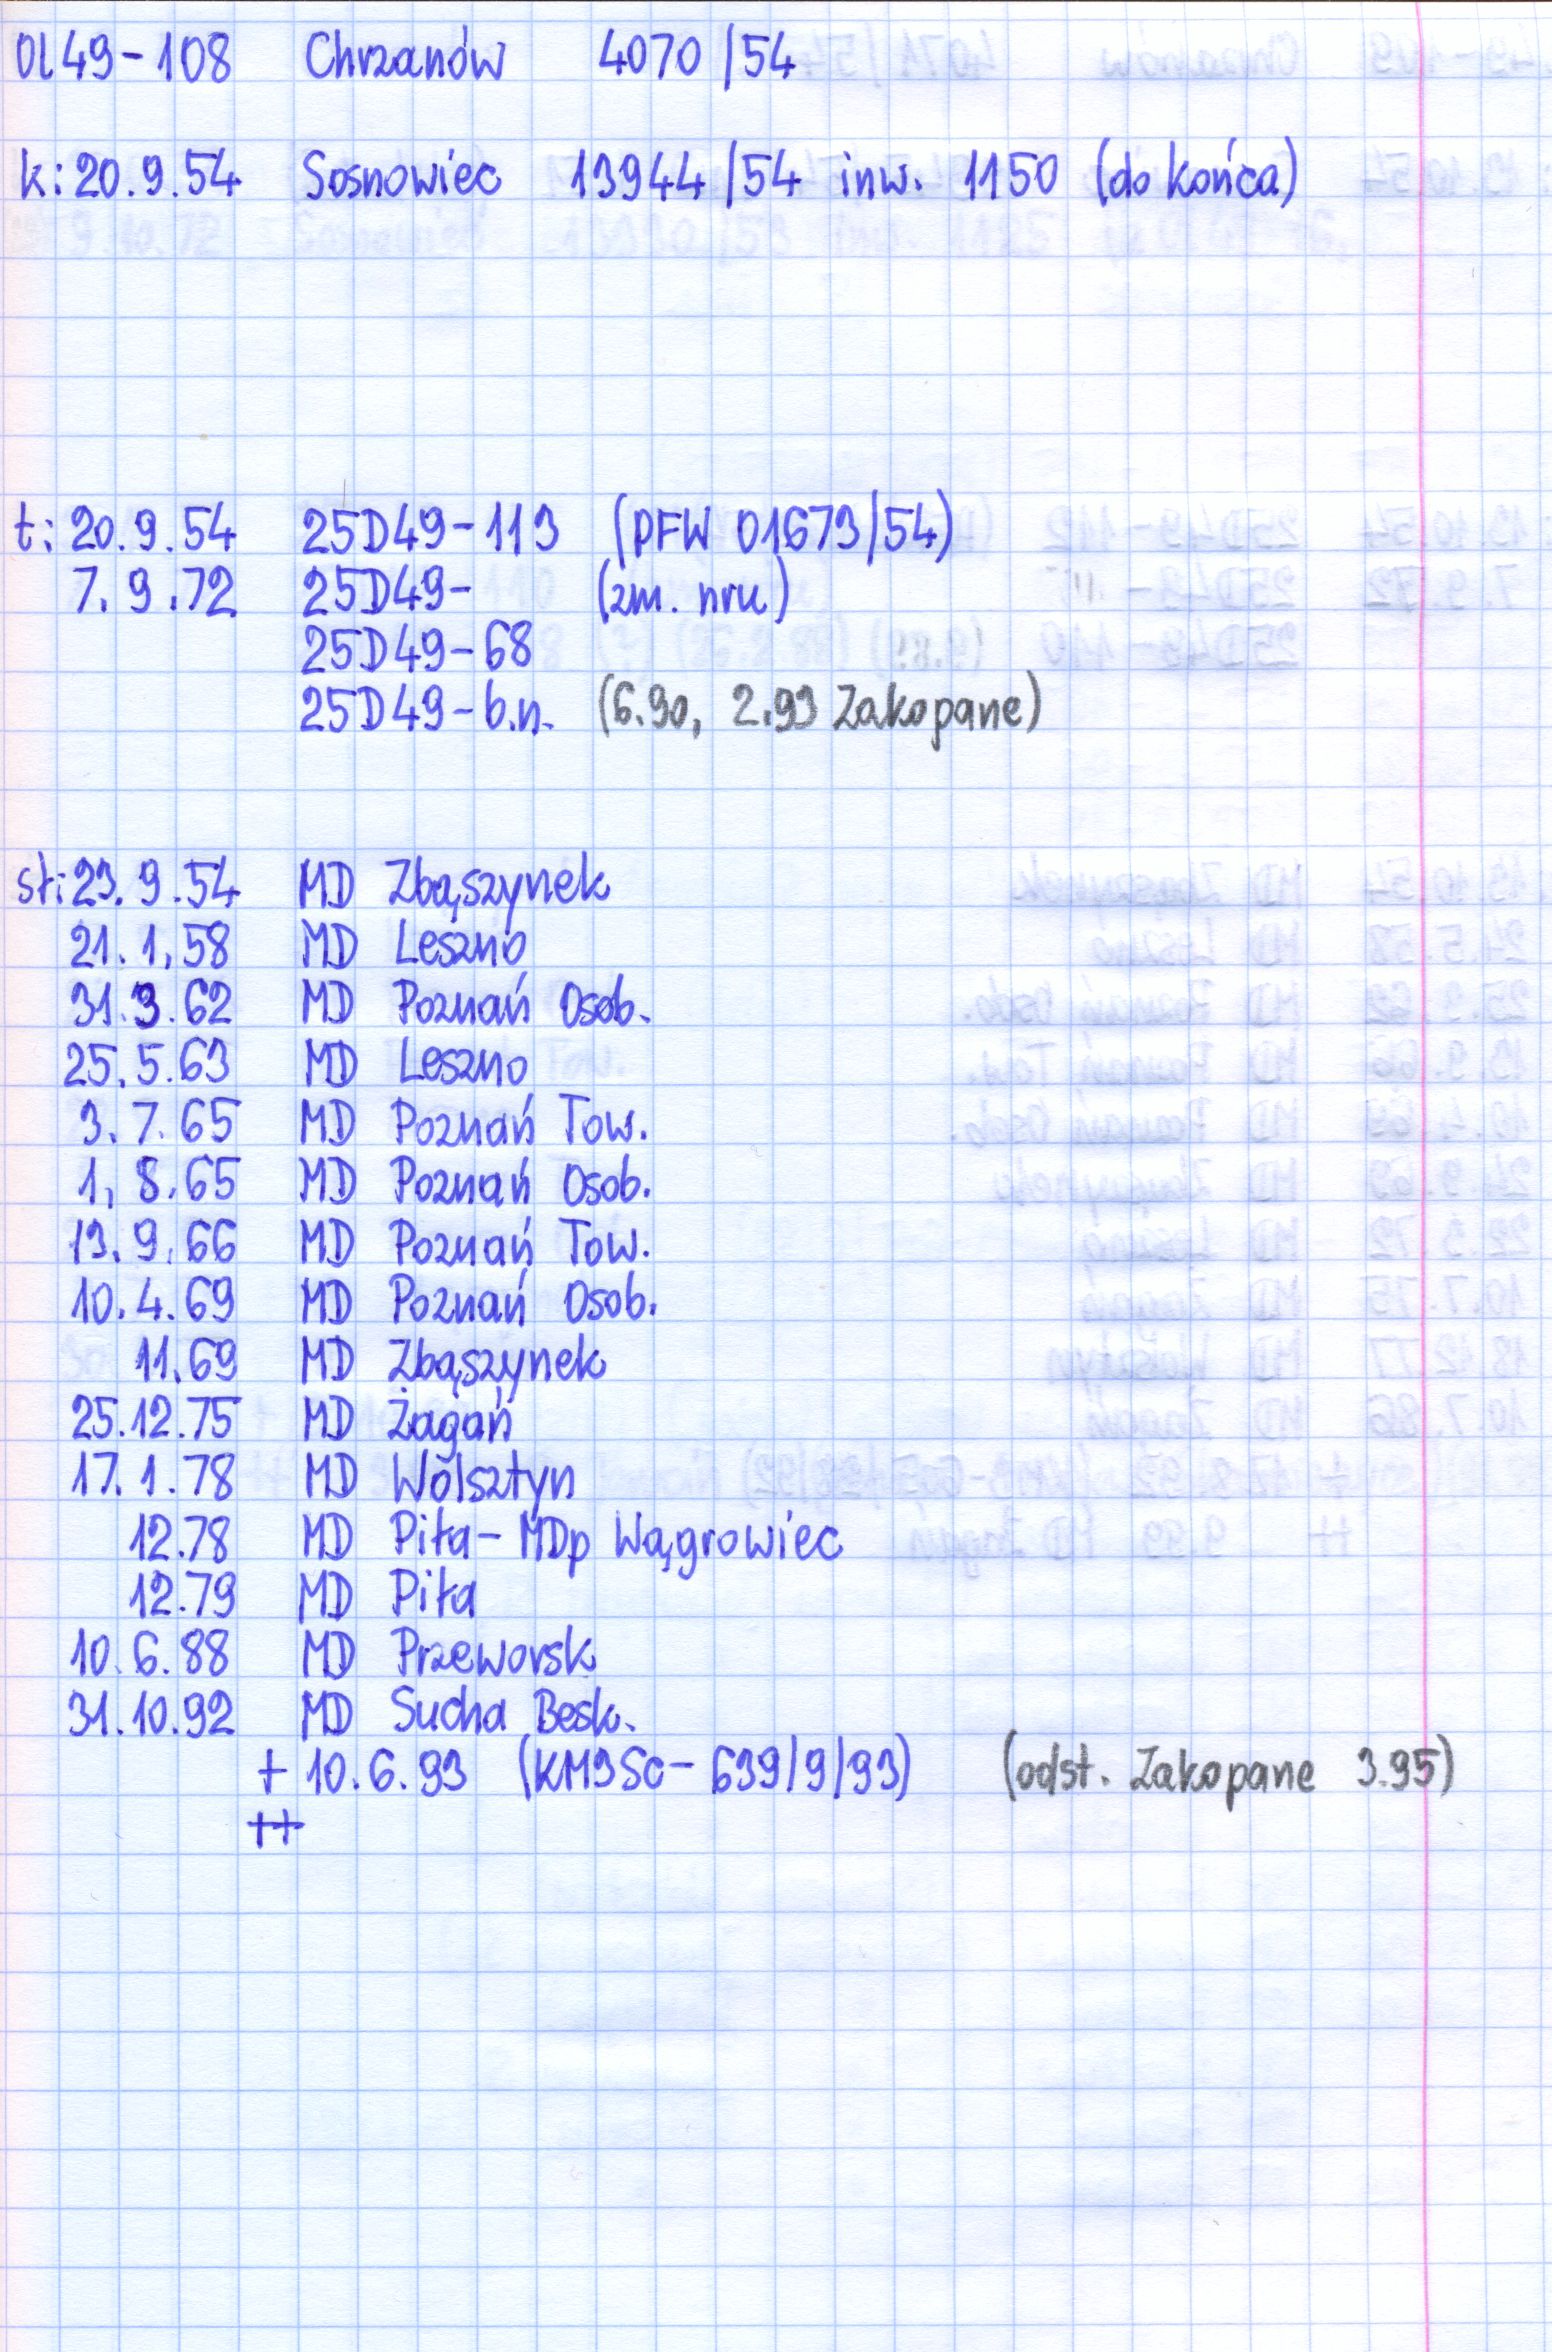 Ol49-108 Chrzanów 4070/54
k: 20.9.54 Sosnowiec 13944/54 inw. 1150 (do końca)
t: 20.9.54 25D49-113 (PFW 01673/54)
7.9.72 25D49- (zm. nru)
25D49-68
25D49-b.n. (6.90, 2.93 Zakopane)
st: 23.9.54 MD Zbąszynek
21.1.58 MD Leszno
31.3.62 MD Poznań Osob.
25.5.63 MD Leszno
3.7.65 MD Poznań Tow.
1.8.65 MD Poznań Osob.
13.9.66 MD Poznań Tow.
10.4.69 MD Poznań Osob.
11.69 MD Zbąszynek
25.12.75 MD Żagań
17.1.78 MD Wolsztyn
12.78 MD Piła - MDp Wągrowiec
12.79 MD Piła
10.6.88 MD Przeworsk
31.10.92 MD Sucha Besk.
+ 10.6.93 (KM3Sc-639/9/93) (odst. Zakopane 3.95)
++